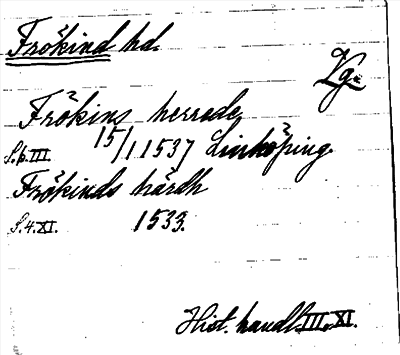 Frökind hd.
Vg.
Frökins herrede
S.6.III. 15/1 1537 Linköping.
Frökinds härdh
S.4.XI. 1533.
Hist. handl. III. XI.